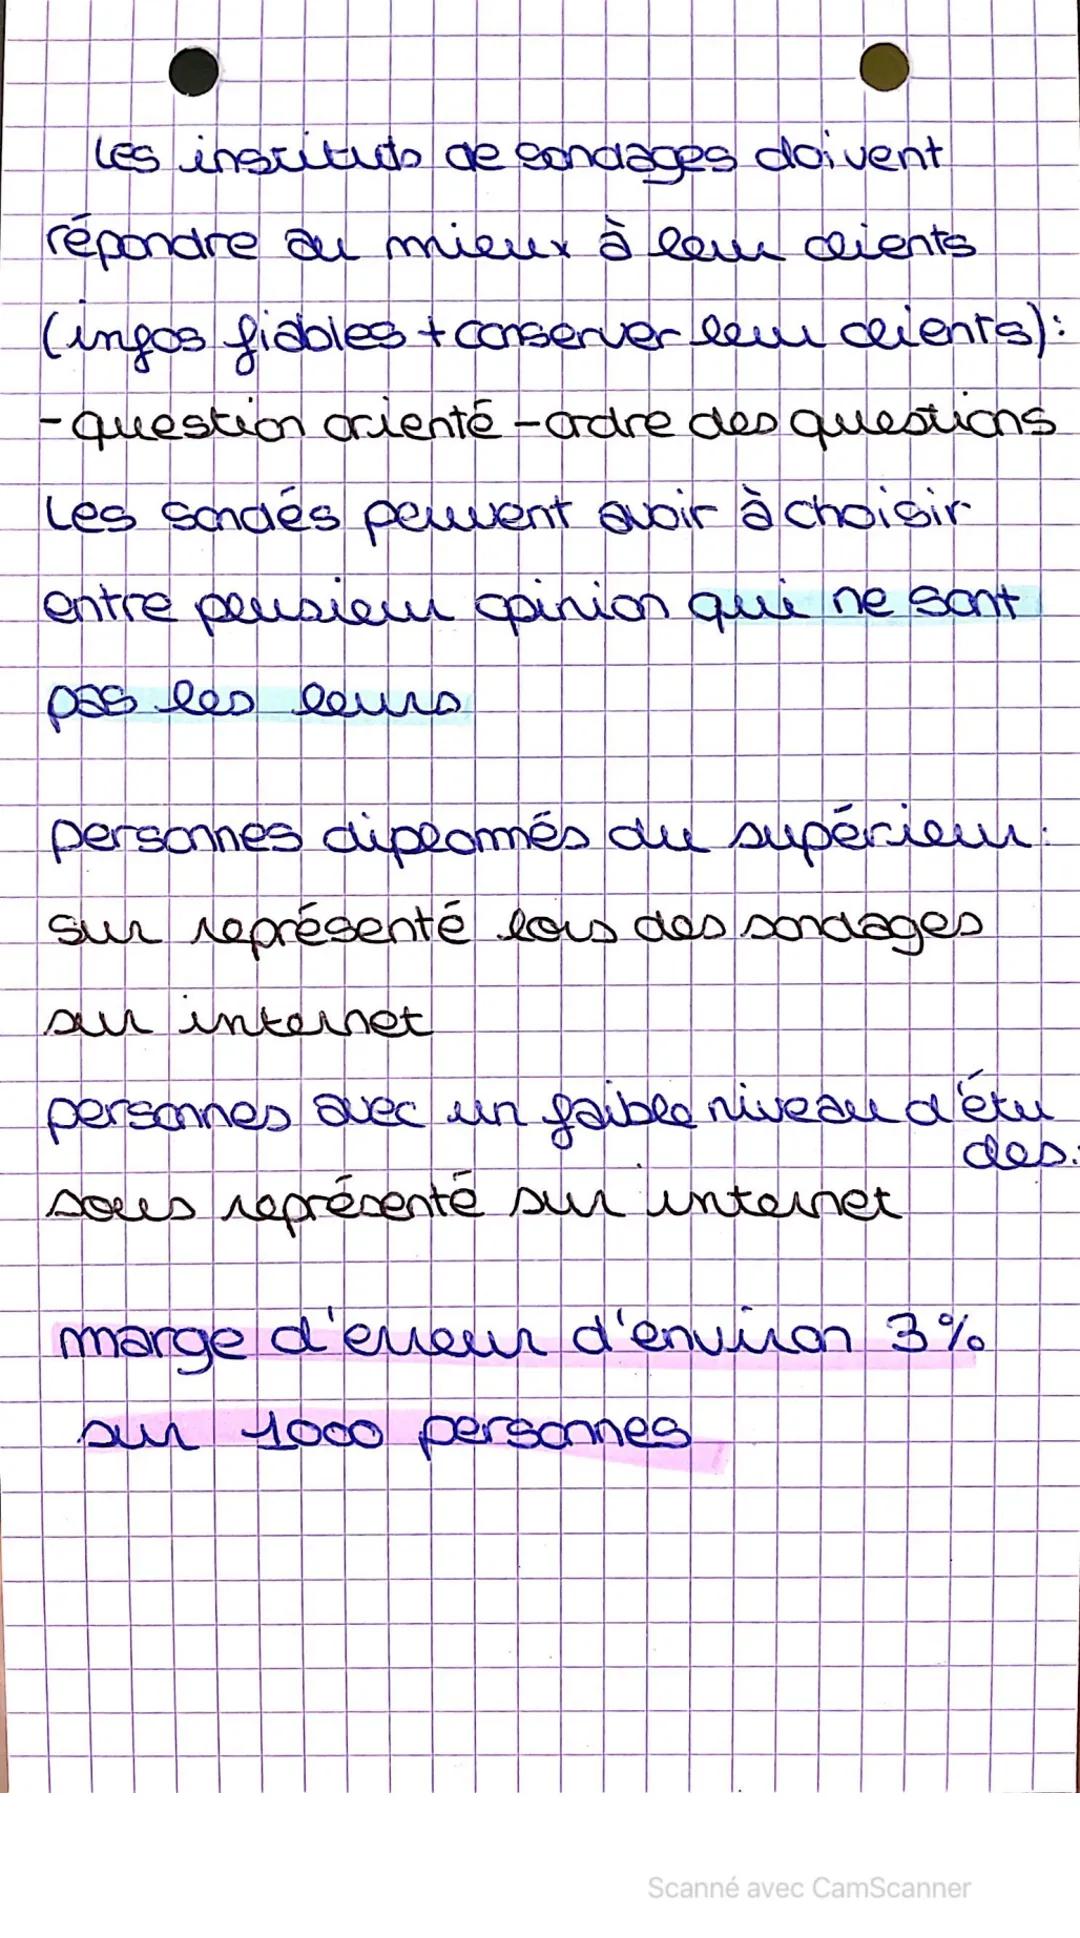 Les instituts de sondages doivent
répondre au mieux à leur clients
(infos fiables + conserver leur clients):
- question orienté - ordre des questions
Les sondés peuvent avoir à choisir
entre plusieur opinion qui ne sont
pas les leurs
personnes diplomés du supérieur:
sur représenté lors des sondages
sur internet
personnes avec un faible niveau d'étu
des:
sous représenté sur internet
marge d'erreur d'environ 3%
sur 1000 personnes
Scanné avec CamScanner